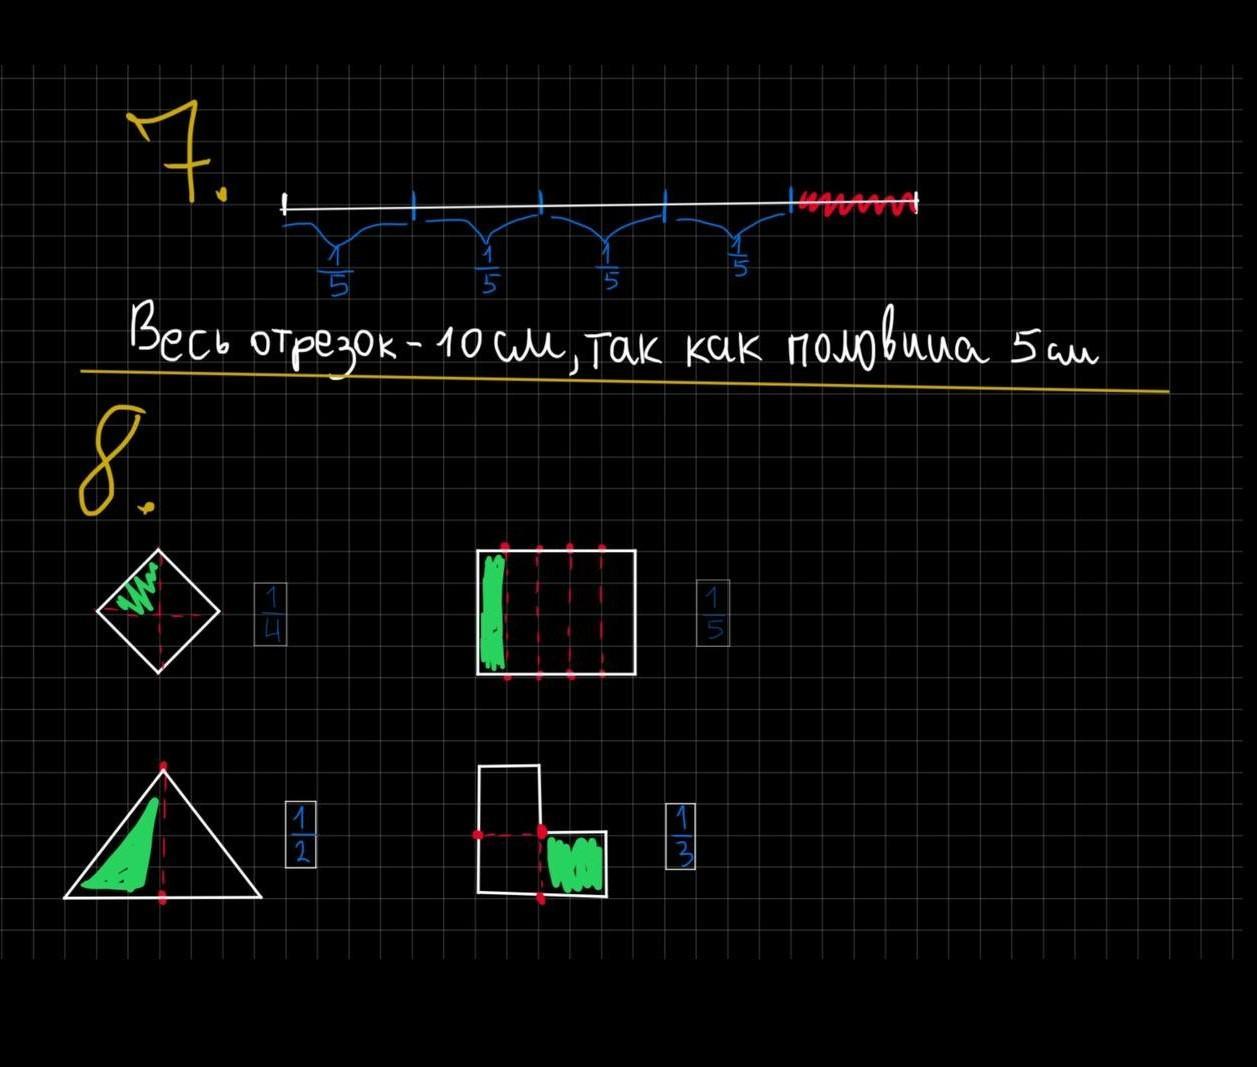 7.
1/5 1/5 1/5 1/5
Весь отрезок - 10 см, так как половина 5 см
8.
1/4 1/5
1/2 1/3